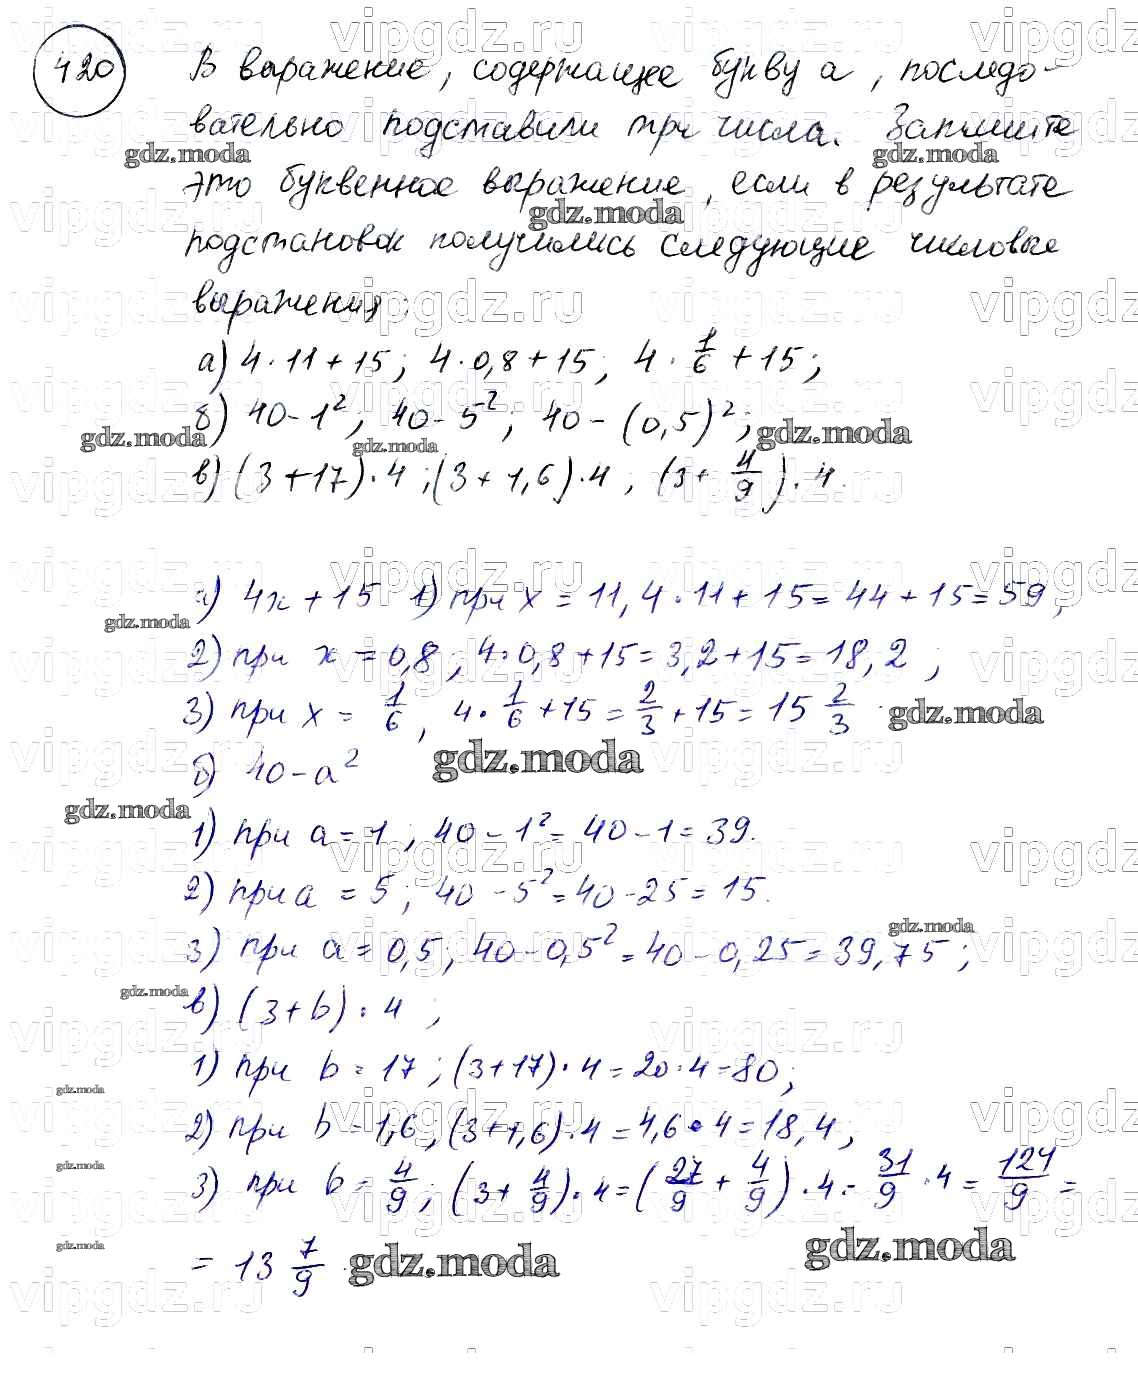 420 В выражение, содержащее букву а, последо-
вательно подставили три числа. Запишите
это буквенное выражение, если в результате
подстановок получились следующие числовые
выражения:
а) 4 · 11 + 15; 4 · 0,8 + 15; 4 · 1/6 + 15;
б) 40 - 1²; 40 - 5²; 40 - (0,5)²;
в) (3 + 17) · 4; (3 + 1,6) · 4; (3 + 4/9) · 4.
а) 4x + 15 1) при x = 11, 4 · 11 + 15 = 44 + 15 = 59;
2) при x = 0,8; 4 · 0,8 + 15 = 3,2 + 15 = 18,2;
3) при x = 1/6, 4 · 1/6 + 15 = 2/3 + 15 = 15 2/3
б) 40 - a²
1) при a = 1; 40 - 1² = 40 - 1 = 39.
2) при a = 5; 40 - 5² = 40 - 25 = 15.
3) при a = 0,5; 40 - 0,5² = 40 - 0,25 = 39,75;
в) (3 + b) · 4;
1) при b = 17; (3 + 17) · 4 = 20 · 4 = 80;
2) при b = 1,6; (3 + 1,6) · 4 = 4,6 · 4 = 18,4;
3) при b = 4/9; (3 + 4/9) · 4 = (27/9 + 4/9) · 4 = 31/9 · 4 = 124/9 =
= 13 7/9
gdz.moda
vipgdz.ru